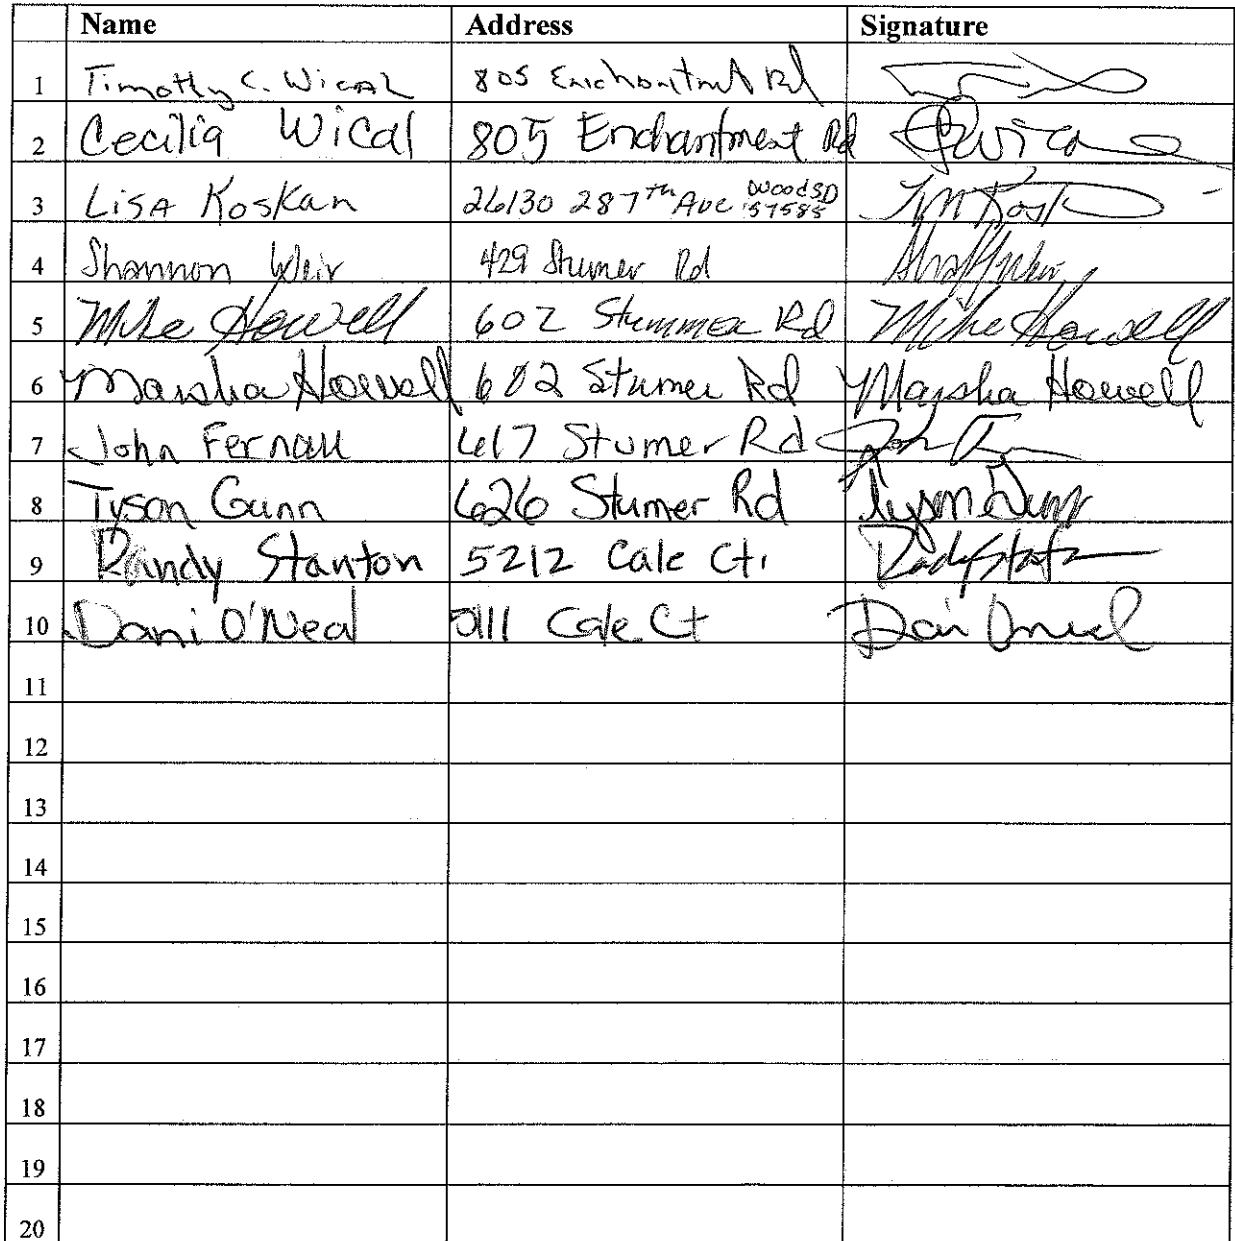 Name Address Signature
1 Timothy C. Wical 805 Enchantment Rd
2 Cecilia Wical 805 Enchantment Rd
3 Lisa Koskan 26130 287th Ave Wood SD 57585
4 Shannon Weir 429 Stumer Rd
5 Mike Howell 602 Stummer Rd Mike Howell
6 Marsha Howell 602 Stumer Rd Marsha Howell
7 John Fernau 617 Stumer Rd John
8 Tyson Gunn 626 Stumer Rd Tyson Gunn
9 Randy Stanton 5212 Cale Ct.
10 Dani O'Neal Cale Ct
11
12
13
14
15
16
17
18
19
20